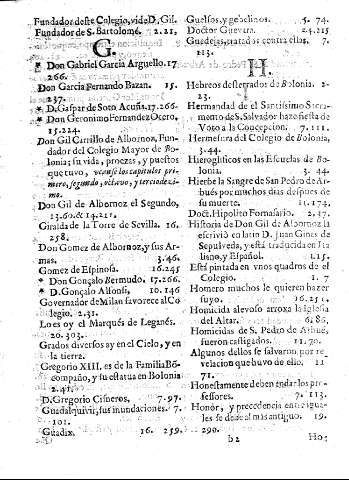 Fundador deste Colegio, vide D. Gil.
Fundador de S. Bartolomé. 2.21.
G.
* Don Gabriel Garcia Arguello. 17
266.
Don Garcia Fernando Bazan. 15.
237.
* D. Gaspar de Soto Acuña. 17. 266.
* Don Geronimo Fernandez Otero.
15.224.
Don Gil Carrillo de Albornoz, Fun-
dador del Colegio Mayor de Bo-
lonia; su vida, proezas, y puestos
que tuvo, veanse los capitulos pri-
mero, segundo, octavo, y terciodezi-
mo.
Don Gil de Albornoz el Segundo,
13.60. et 14.211.
Giralda de la Torre de Sevilla. 16.
258.
Don Gomez de Albornoz, y sus Ar-
mas. 3.46.
Gomez de Espinosa. 16.245
* Don Gonçalo Bermudo. 17.266.
* D. Gonçalo Alfonso, 10.146
Governador de Milan favorece al Co-
legio. 2.31.
Lo es oy el Marqués de Leganés.
20.303.
Grados diversos ay en el Cielo, y en
la tierra.
Gregorio XIII. es de la Familia Bô-
compaño, y su estatua en Bolonia
2.41.
D. Gregorio Cisneros. 7.97.
Guadalquivir, sus inundaciones. 7.
101.
Guadix. 16. 259. 290.
Guelfos, y gebelinos. 5. 74.
Doctor Guevara. 24.215
Guedejas, tratados contra ellas. 7.
113.
H.
Hebreos desterrados de Bolonia. 2.
23.
Hermandad de el Santissimo Sacra-
mento de S. Salvador haze fiesta de
Voto a la Concepcion. 7. 111.
Hermosura del Colegio de Bolonia,
3.44.
Hierogliticos en las Escuelas de Bo-
lonia. 3. 44.
Hierbe la Sangre de San Pedro de Ar-
bues por muchos dias despues de
su muerte. 11.174,
Doct. Hipolito Fornasario. 2.17.
Historia de Don Gil de Albornoz la
escrivió en latin D. Juan Gines de
Sepulveda, y está traducida en Ita-
liano, y Español. 1.15.
Está pintada en vnos quadros de el
Colegio. 1. 7
Homero mucho le quieren hazer
suyo. 16.251.
Homicida alevoso arroxa la Iglesia
del Altar. 6.86.
Homicidas de S. Pedro de Arbué,
fueron castigados. 11. 70.
Algunos dellos se salvaron, por re-
velacion que huvo de ello. 11
71.
Honestamente deben andar los pro-
fessores. 7. 113.
Honor, y precedencia entre igua-
les se debe al mas antiguo. 19.
b2 Ho: